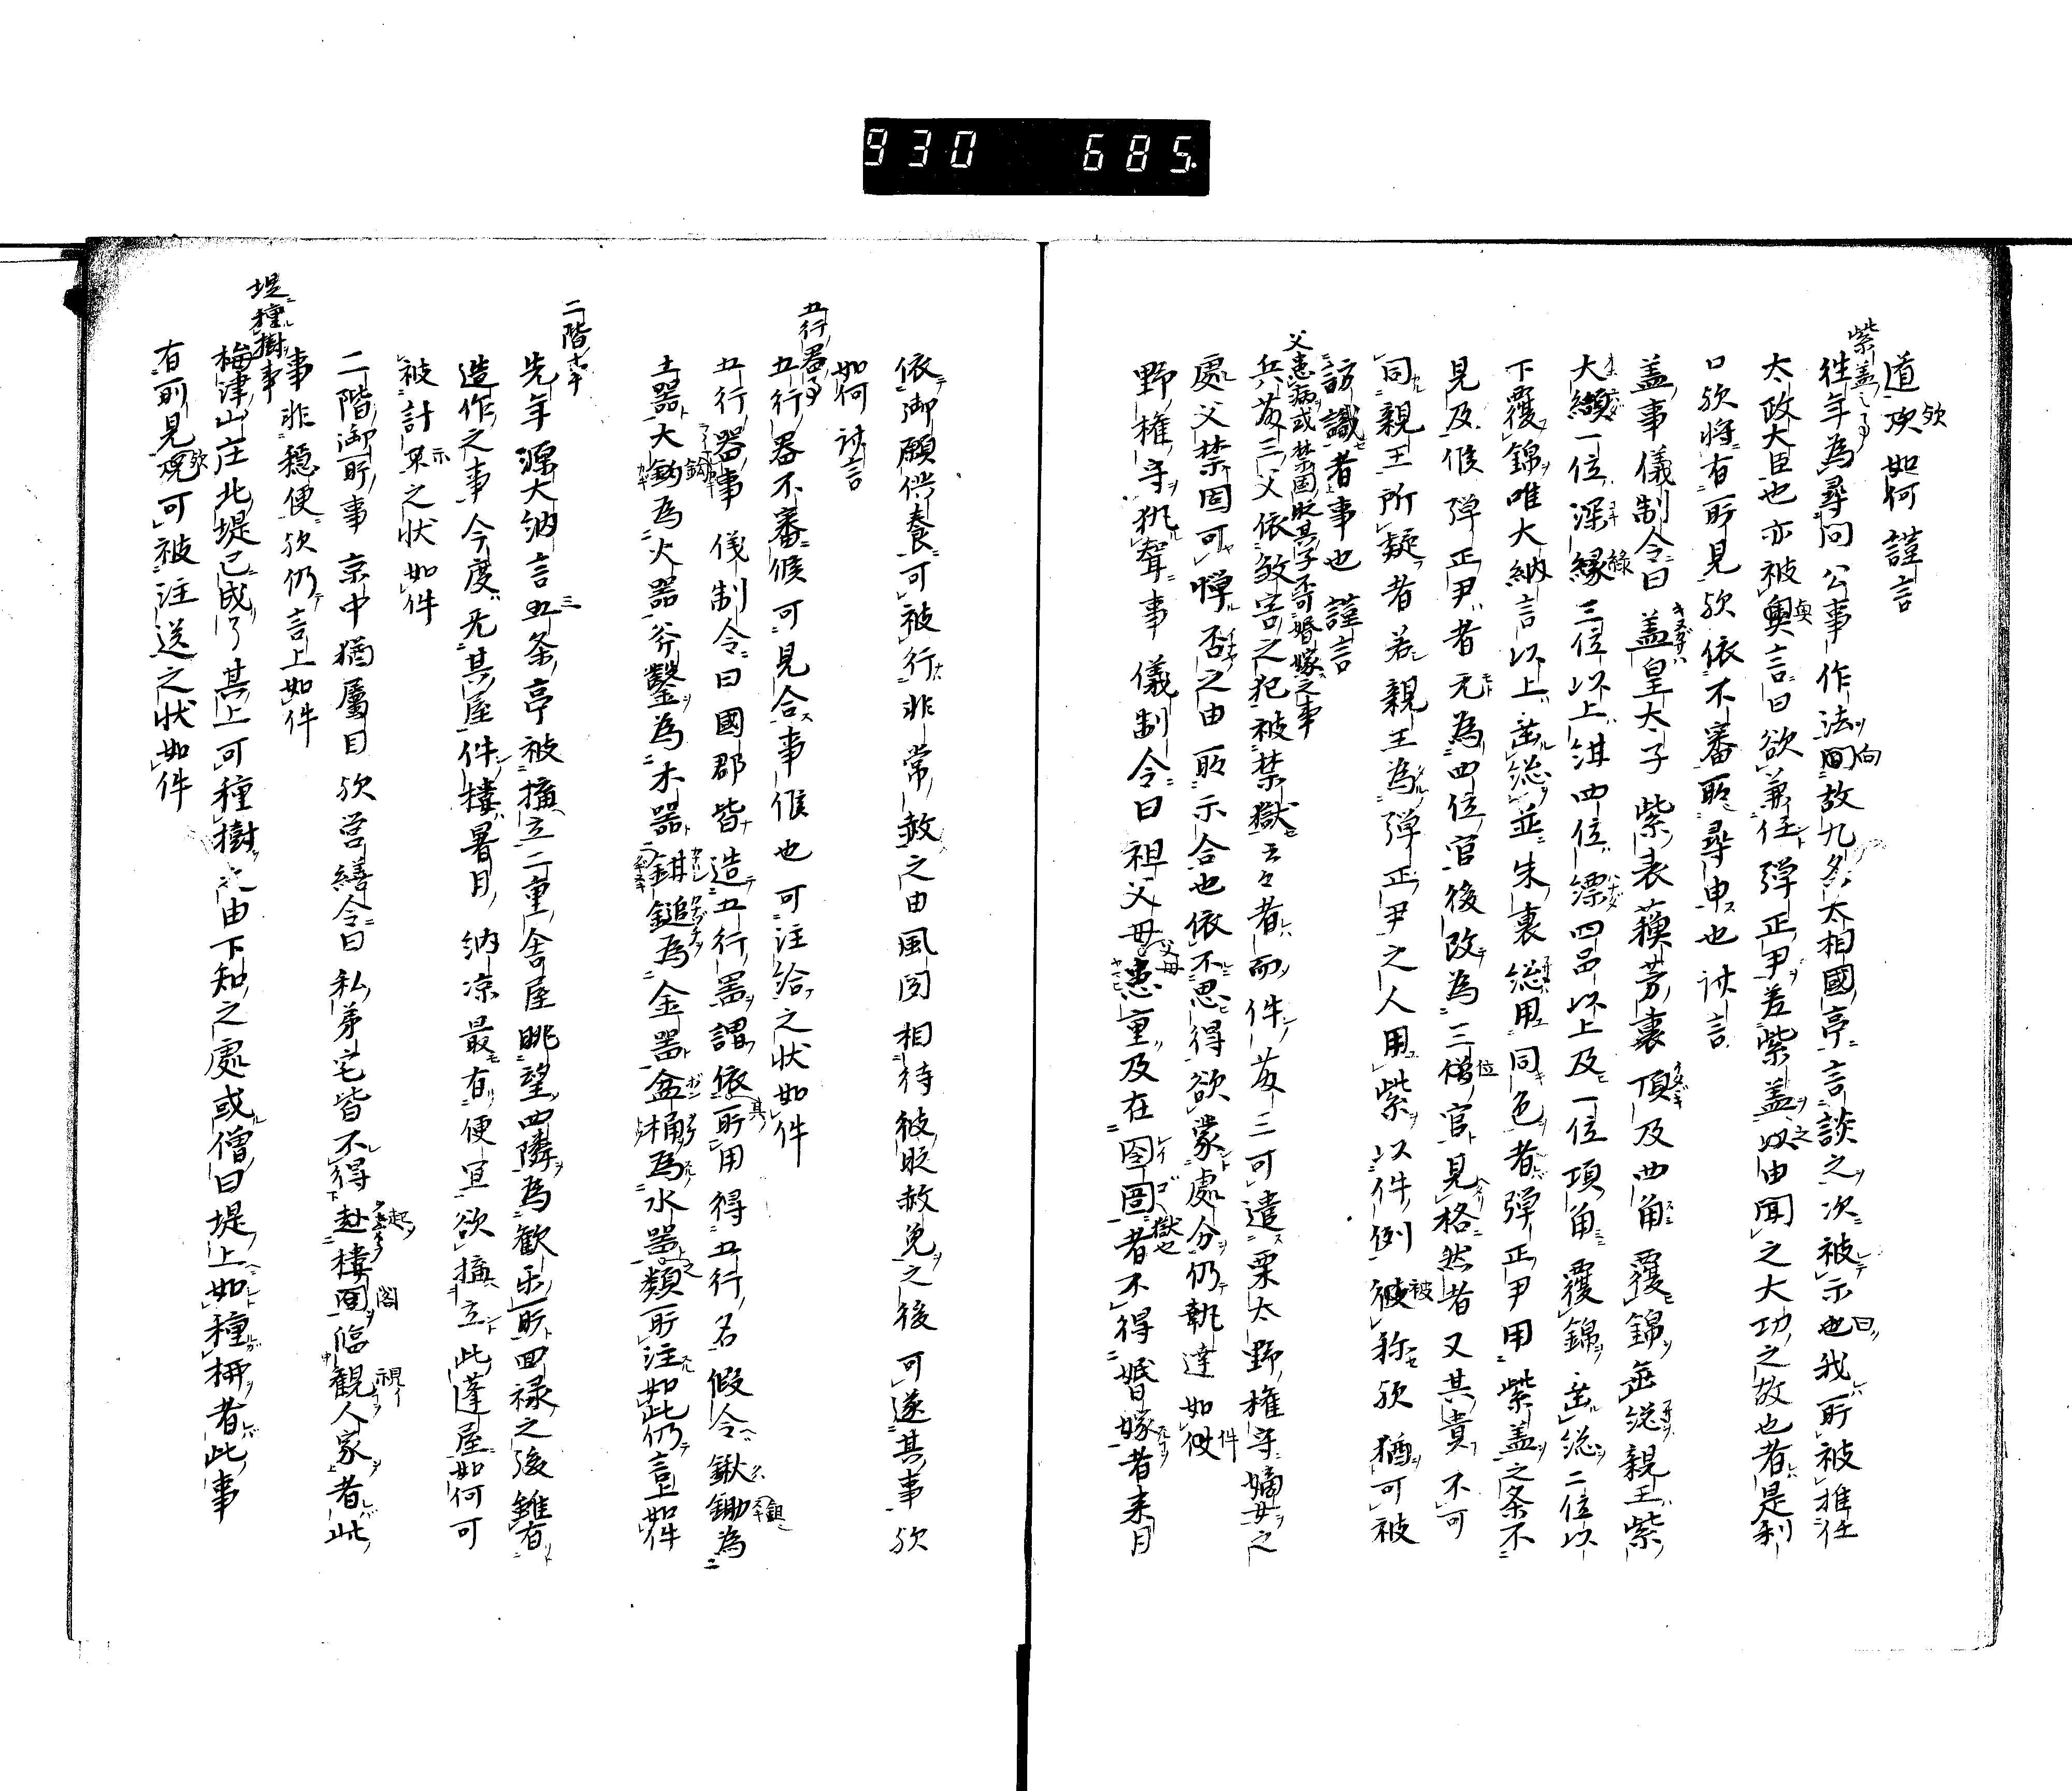 930 685
道欤如何 謹言
紫盖事
往年為尋問公事作法向故九条太相國亭言談之次被示曰我所被推任
太政大臣也亦被輿言曰欲兼任弾正尹差紫盖之由聞之大功之故也者是利
口欤将有所見欤依不審所尋申也 謹言
盖事儀制令曰 盖皇太子紫表蘇芳裏頂及四角覆錦垂総親王紫
大纈一位深緑三位以上紺四位縹四品以上及一位頂角覆錦垂総二位以
下覆錦唯大納言以上垂総並朱裏総用同色者弾正尹用紫盖之条不
見及候弾正尹者元為四位官後改為三位官見格然者又其貴不可
同親王所疑者若親王為弾正尹之人用紫以件例被称欤猶可被
訪識者事也 謹言
父患病或禁固時其子不可婚嫁之事
兵藤三父依殺害之犯被禁獄云々者而件藤三可遣栗太野権守嫡女之
處父禁固可憚否之由所示合也依不思得欲蒙處分仍執達如件
野権守 聟事 儀制令曰祖父母父母患重及在囹圄獄也者不得婚嫁者来月
依御願供養可被行非常赦之由風聞相待彼赦免之後可遂其事欤
如何 謹言
五行器事
五行器不審候可見合事候也可注給之状如件
五行器事 儀制令曰國郡皆造五行器謂依所用得五行名假令鍬鋤為
土器大鉤為火器斧鑿為木器鉗鎚為金器盆桶為水器之類所注如此仍言上如件
二階七々
先年源大納言三条亭被搆立二重舎屋眺望四隣為歓楽所回禄之後雖有
造作之事今度无其屋件樓暑月納凉最有便宜欲搆立此蓬屋如何可
被計示之状如件
二階御所事京中猶属目欤営繕令曰私第宅皆不得起樓閣臨視人家者此
事非穏便欤仍言上如件
堤種樹事
梅津山庄北堤已成了其上可種樹之由下知之處或僧曰堤上如種栁者此事
有所見欤可被注送之状如件